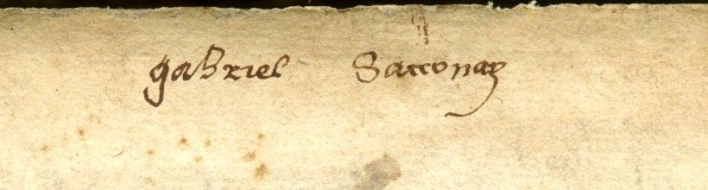 gabriel Sacconay